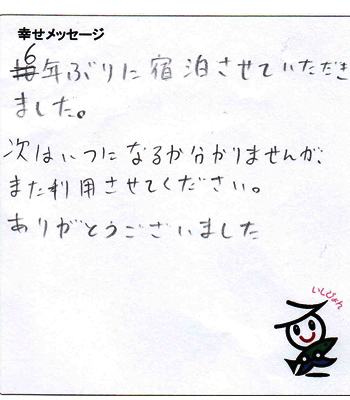 幸せメッセージ
6年ぶりに宿泊させていただき
ました。
次はいつになるか分かりませんが、
また利用させてください。
ありがとうございました
いしぴょん